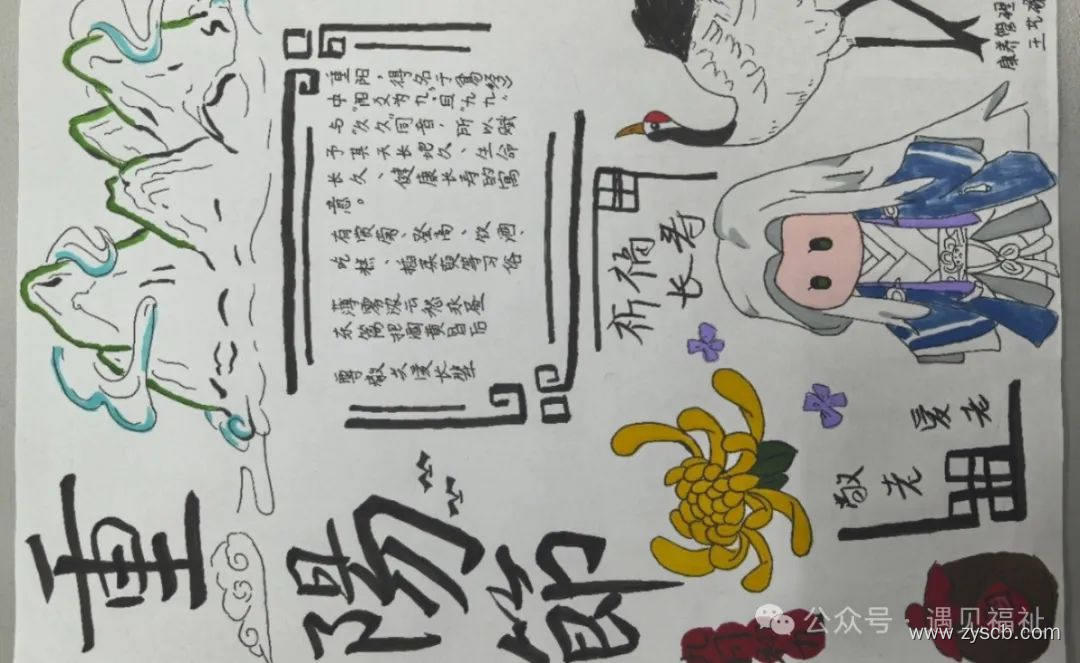 重陽節
重阳，得名于《易经》
中“阳爻为九”，且“九九”
与“久久”同音，所以赋
予其天长地久、生命
长久、健康长寿的寓
意。
有赏菊、登高、饮酒、
吃糕、插茱萸等习俗
薄雾浓云愁永昼
东篱把酒黄昏后
尊敬长辈
祈福
长寿
敬老
爱老
公众号·遇见福祉
www.zyscb.com